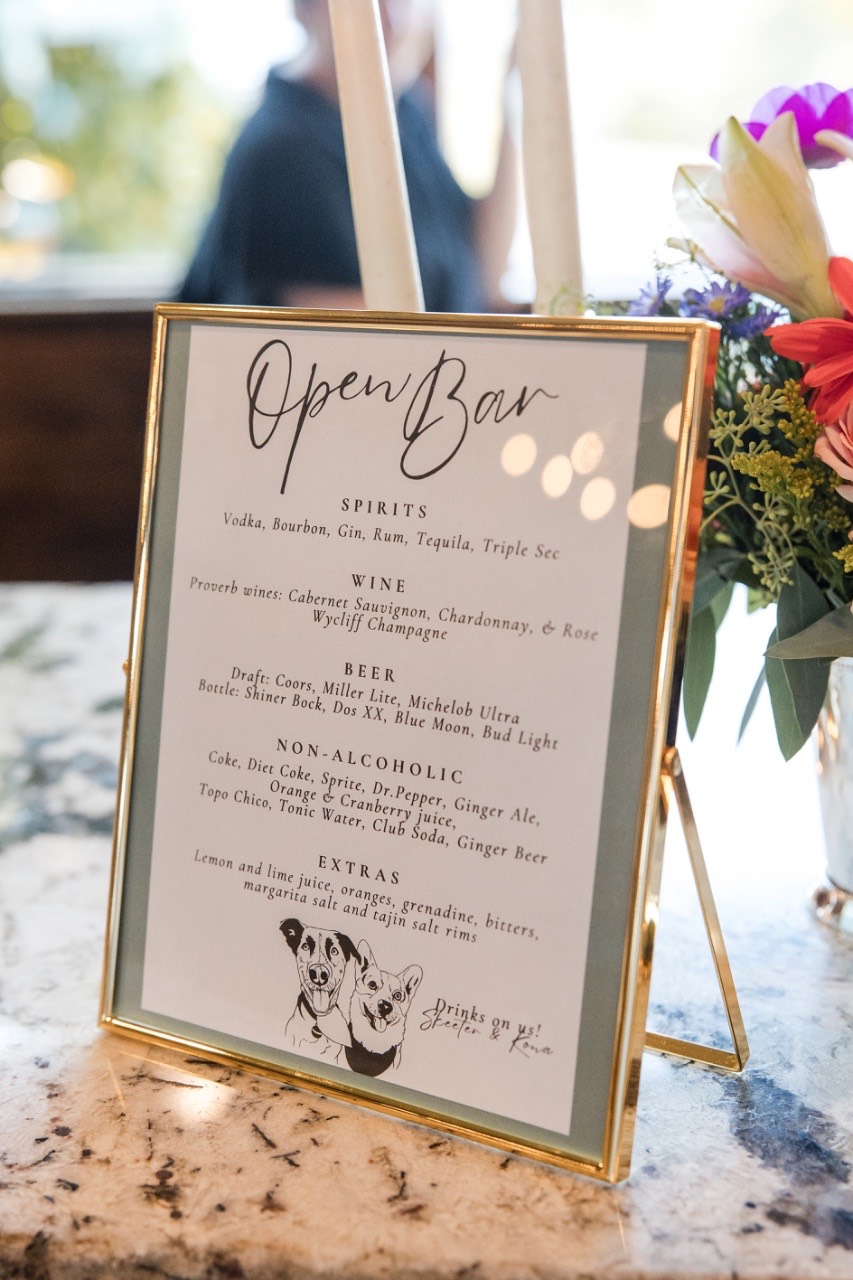 Open Bar
SPIRITS
Vodka, Bourbon, Gin, Rum, Tequila, Triple Sec
WINE
Proverb wines: Cabernet Sauvignon, Chardonnay, & Rose
Wycliff Champagne
BEER
Draft: Coors, Miller Lite, Michelob Ultra
Bottle: Shiner Bock, Dos XX, Blue Moon, Bud Light
NON-ALCOHOLIC
Coke, Diet Coke, Sprite, Dr.Pepper, Ginger Ale,
Orange & Cranberry juice,
Topo Chico, Tonic Water, Club Soda, Ginger Beer
EXTRAS
Lemon and lime juice, oranges, grenadine, bitters,
margarita salt and tajin salt rims
Drinks on us!
Skeeter & Kona